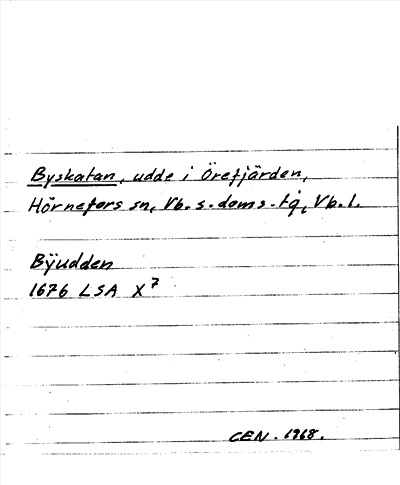 Byskatan, udde i Örefjärden,
Hörnefors sn, Vb. s. doms. tg, Vb. l.
Bÿudden
1676 LSA X 7
CEN. 1968.